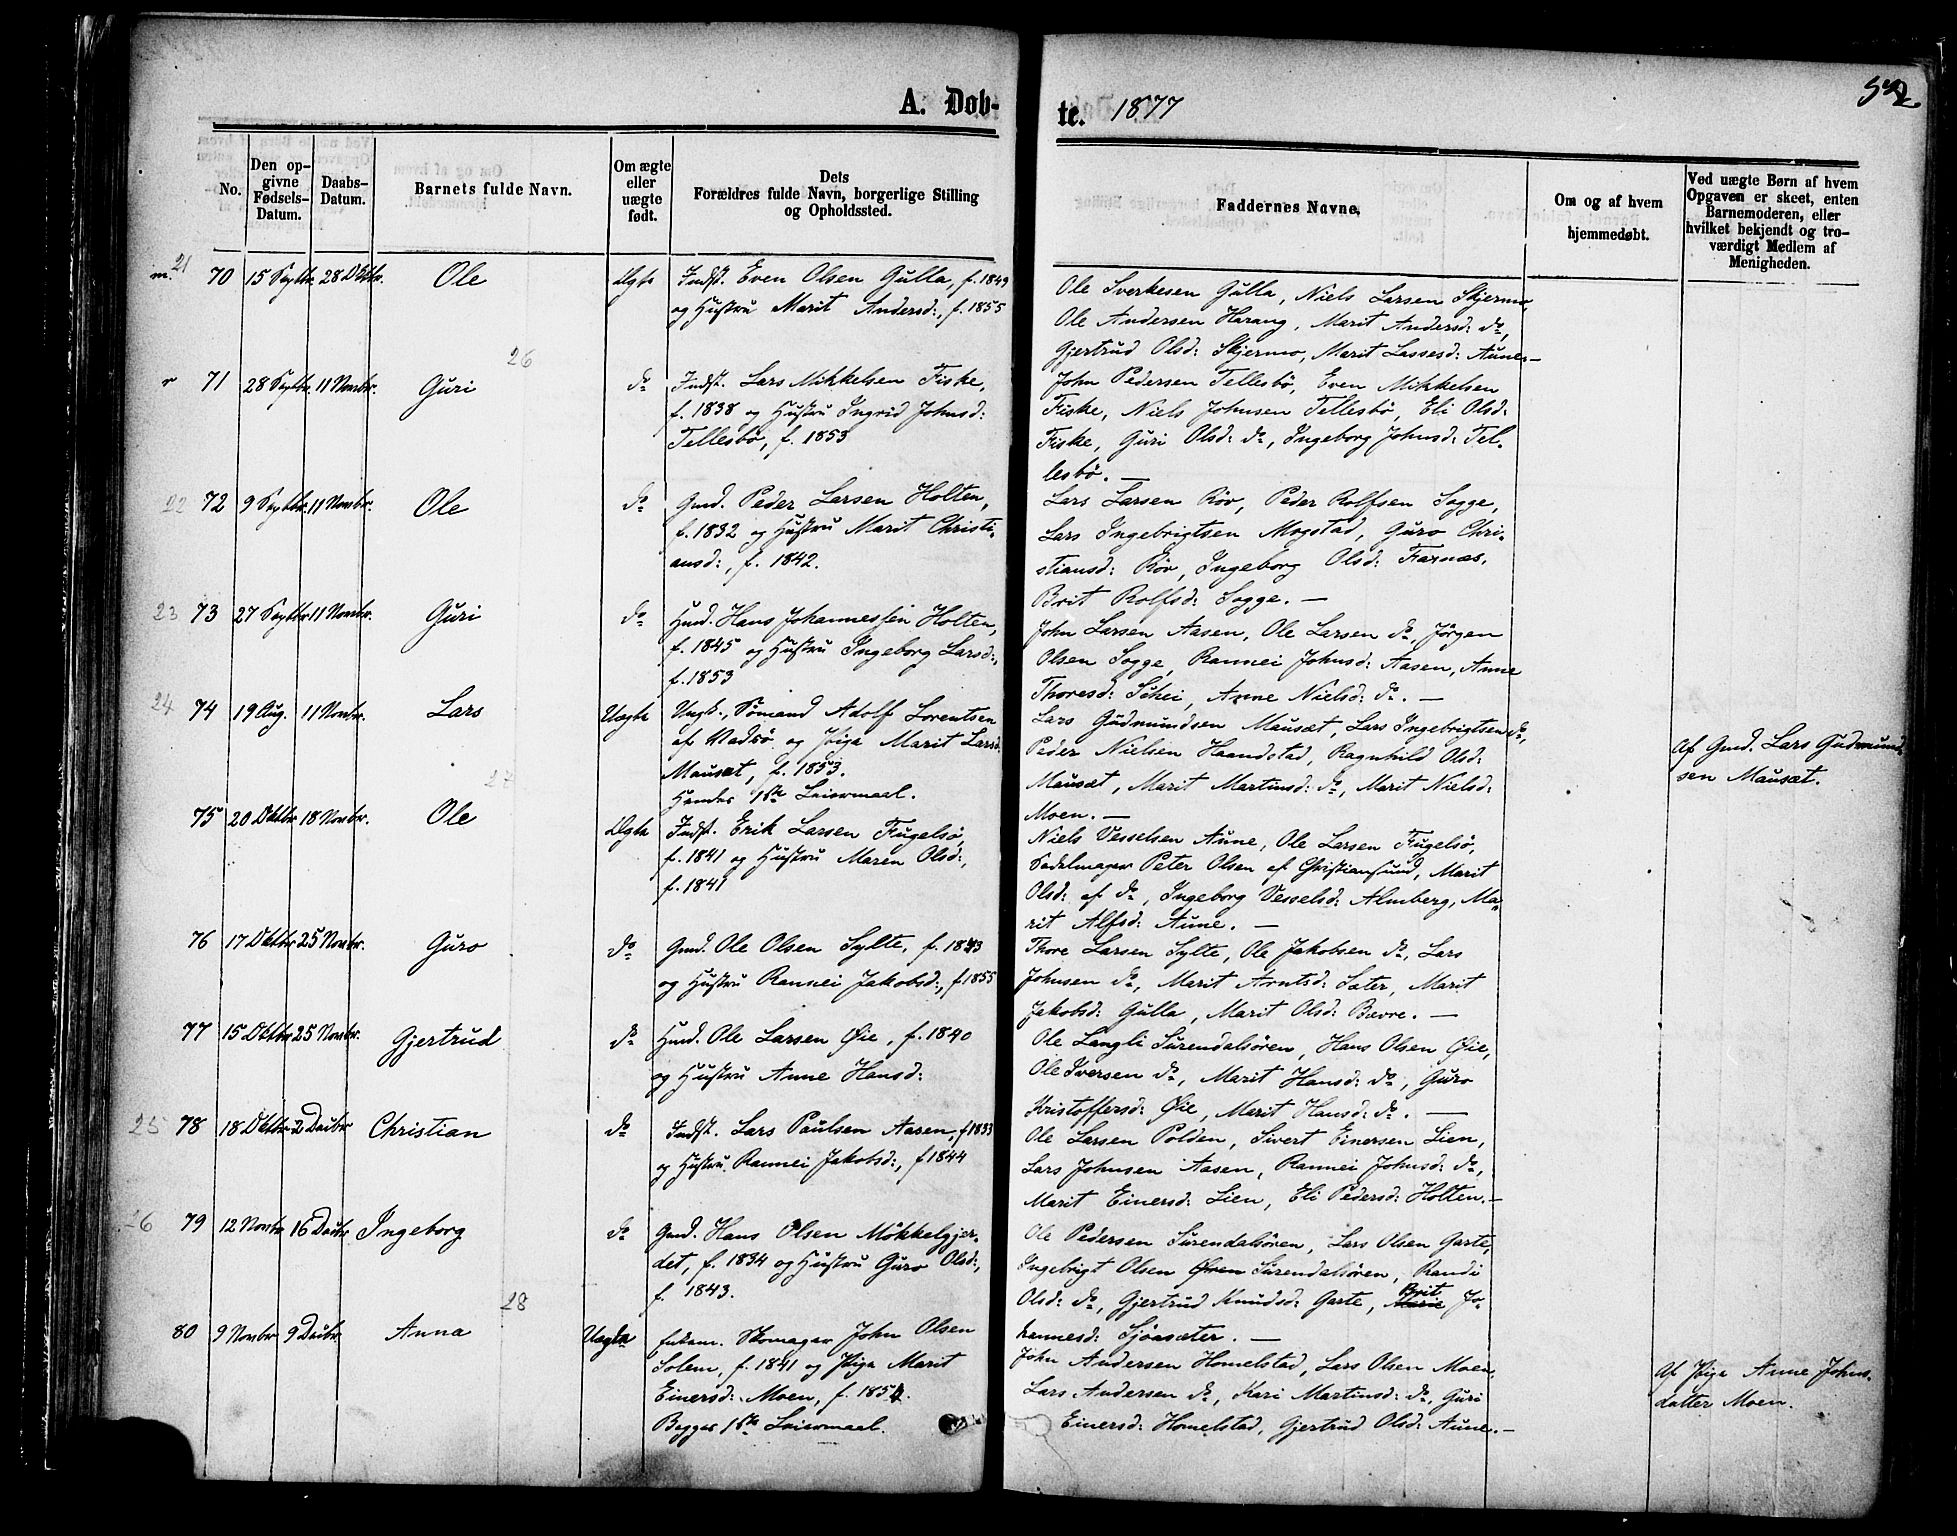 A. Døb-
te. 1877
No.
Den op-
givne
Fødsels-
Datum.
Daabs-
Datum.
Barnets fulde Navn.
Om ægte
eller
uægte
født.
Dets
Forældres fulde Navn, borgerlige Stilling
og Opholdssted.
Faddernes Navne.
Om og af hvem
hjemmedøbt.
Ved uægte Børn af hvem
Opgaven er skeet, enten
Barnemoderen, eller
hvilket bekjendt og tro-
værdigt Medlem af
Menigheden.
21 70 15 Septbr. 28 Oktbr. Ole Ægte Indst. Even Olsen Gulla, f. 1849
og Hustru Marit Andersd:, f. 1855
Ole Sverkesen Gulla, Niels Larsen Skjermo,
Ole Andersen Harang, Marit Andersd: do,
Gjertrud Olsd: Skjermo, Marit Lassesd: Aune.—
26
71 28 Septbr. 11 Novbr. Guri do Indst. Lars Mikkelsen Fiske,
f. 1838 og Hustru Ingrid Johnsd:
Tellesbö, f. 1853
John Pedersen Tellesbö, Even Mikkelsen
Fiske, Niels Johnsen Tellesbö, Eli Olsd:
Fiske, Guri Olsd: do, Ingeborg Johnsd: Tel-
lesbö. —
22 72 9 Septbr. 11 Novbr. Ole do Gmd. Peder Larsen Holten,
f. 1832 og Hustru Marit Christi-
ansd:, f. 1842.
Lars Larsen Röv, Peder Rolfsen Sogge,
Lars Ingebrigtsen Mogstad, Guro Chri-
stiansd: Röv, Ingeborg Olsd: Farnæs.
Brit Rolfsd: Sogge. —
23 73 27 Septbr. 11 Novbr. Guri do Hmd. Hans Johannessen Holten,
f. 1845 og Hustru Ingeborg Larsd:,
f. 1853
John Larsen Aasen, Ole Larsen do, Jörgen
Olsen Sogge, Rannei Johnsd: Aasen, Anne
Thoresd: Schei, Anne Nielsd: do. —
24 74 19 Aug. 11 Novbr. Lars Uægte Ungk., Sömand Adolf Lorentsen
af Vadsö og Pige Marit Larsd:
Mausæt, f. 1853.
Hendes 1ste Leiermaal.
Lars Gudmundsen Mausæt, Lars Ingebrigtsen do,
Peder Nielsen Haandstad, Ragnhild Olsd:
Mausæt, Marit Martinsd: do, Marit Nielsd:
Moen. —
Af Gmd. Lars Gudmund-
sen Mausæt.
27
75 20 Oktbr 18 Novbr. Ole Ægte Indst. Erik Larsen Fugelsö,
f. 1841 og Hustru Maren Olsd:,
f. 1841
Niels Vesselsen Aune, Ole Larsen Fugelsö,
Sadelmager Peter Olsen af Christiansund, Marit
Olsd: af do, Ingeborg Vesselsd: Almberg, Ma-
rit Alfsd: Aune. —
76 17 Oktbr 25 Novbr. Guro do Gmd. Ole Olsen Sylte, f. 1843
og Hustru Rannei Jakobsd:, f. 1855
Thore Larsen Sylte, Ole Jakobsen do, Lars
Johnsen do, Marit Arntsd: Sæter, Marit
Jakobsd: Gulla, Marit Olsd: Bævre. —
77 15 Oktbr 25 Novbr. Gjertrud do Hmd. Ole Larsen Øie, f. 1840
og Hustru Anne Hansd:
Ole Langli Surendalsören, Hans Olsen Øie,
Ole Iversen do, Marit Hansd: do, Guro
Kristoffersd: Øie, Marit Hansd: do. —
25 78 18 Oktbr 2 Decbr Christian do Indst. Lars Paulsen Aasen, f. 1833
og Hustru Rannei Jakobsd:, f. 1844
Ole Larsen Polden, Sivert Einersen Lien,
Lars Johnsen Aasen, Rannei Johnsd: do,
Marit Einersd: Lien, Eli Pedersd: Holten.—
26 79 12 Novbr 16 Decbr Ingeborg do Gmd. Hans Olsen Mökkelgjer-
det, f. 1834 og Hustru Guro Olsd:,
f. 1843.
Ole Pedersen Surendalsören, Lars Olsen Garte,
Ingebrigt Olsen Øren Surendalsören, Randi
Olsd: do, Gjertrud Knudsd: Garte, Marie Brit Jo-
hannesd: Sjöasæter. —
28
80 9 Novbr 9 Decbr Anna Uægte Enkem. Skomager John Olsen
Solem, f. 1841 og Pige Marit
Einersd: Moen, f. 1854.
Begges 1ste Leiermaal.
John Andersen Homelstad, Lars Olsen Moen,
Lars Andersen do, Kari Martinsd: do, Guri
Einersd: Homelstad, Gjertrud Olsd: Aune.—
Af Pige Anne Johns-
datter Moen.